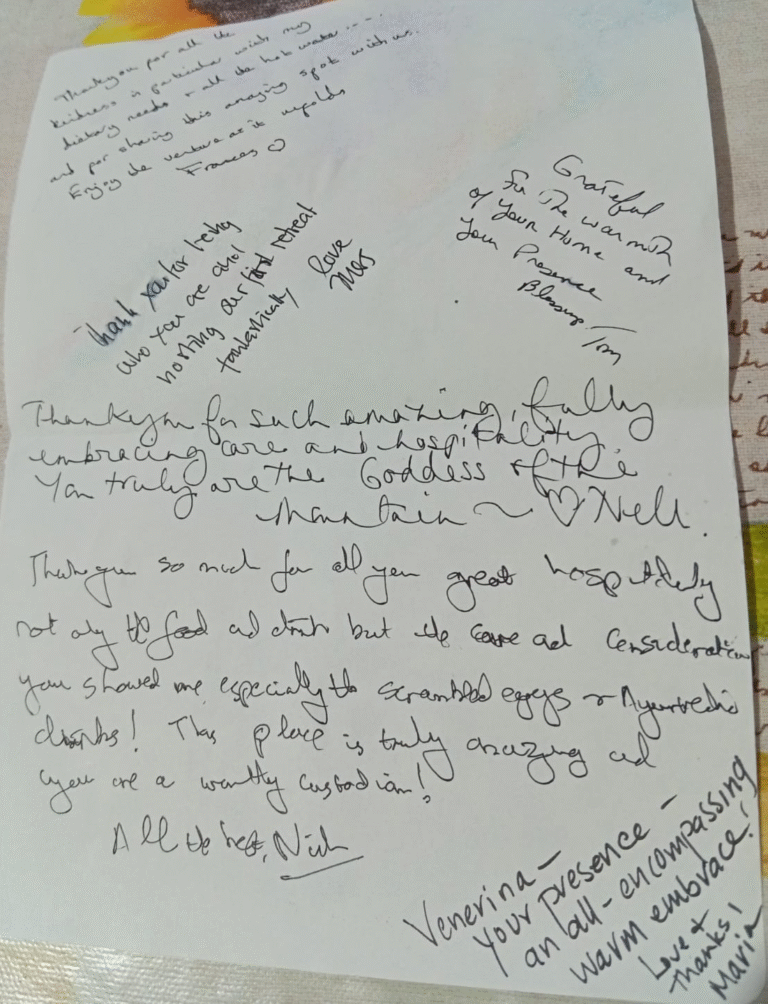 Thankyou for all the
kindness in particular with my
dietary needs + all the hot water ....
and for sharing this amazing spot with us.
Enjoy the venture as it unfolds
Frances ♡
Grateful
for The warmth
of Your Home and
Your Presence
Blessings Tom
Thank you for being
who you are and
hosting our first retreat
fantastically
love
Thankyou for such amazing, fully
embracing care and hospitality.
You truly are the Goddess of the
Mountain ~ ♡ Nell.
Thankyou so much for all your great hospitality
not only the food and drink but the care and consideration
you showed me, especially the scrambled eggs & Ayurvedic
drinks! This place is truly amazing and
you are a worthy custodian!
All the best, Nick
Venerina –
Your presence –
an all-encompassing
warm embrace!
Love +
Thanks!
Maria